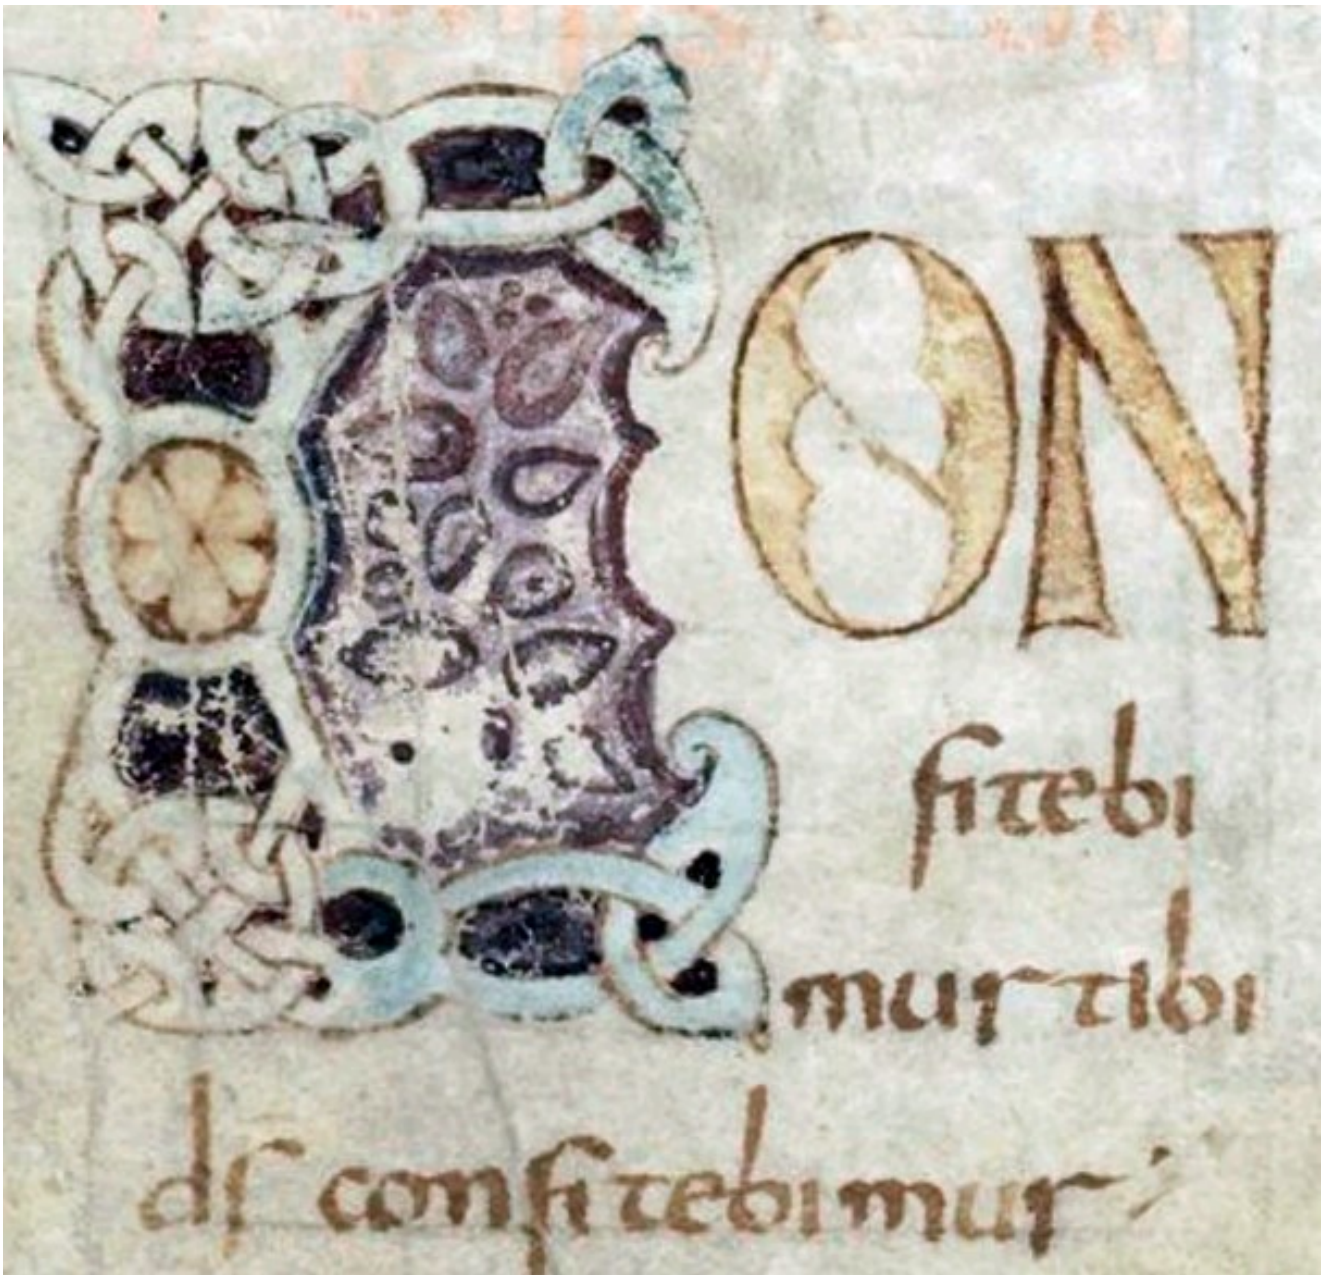 CON
fitebi
mur tibi
ds confitebimur